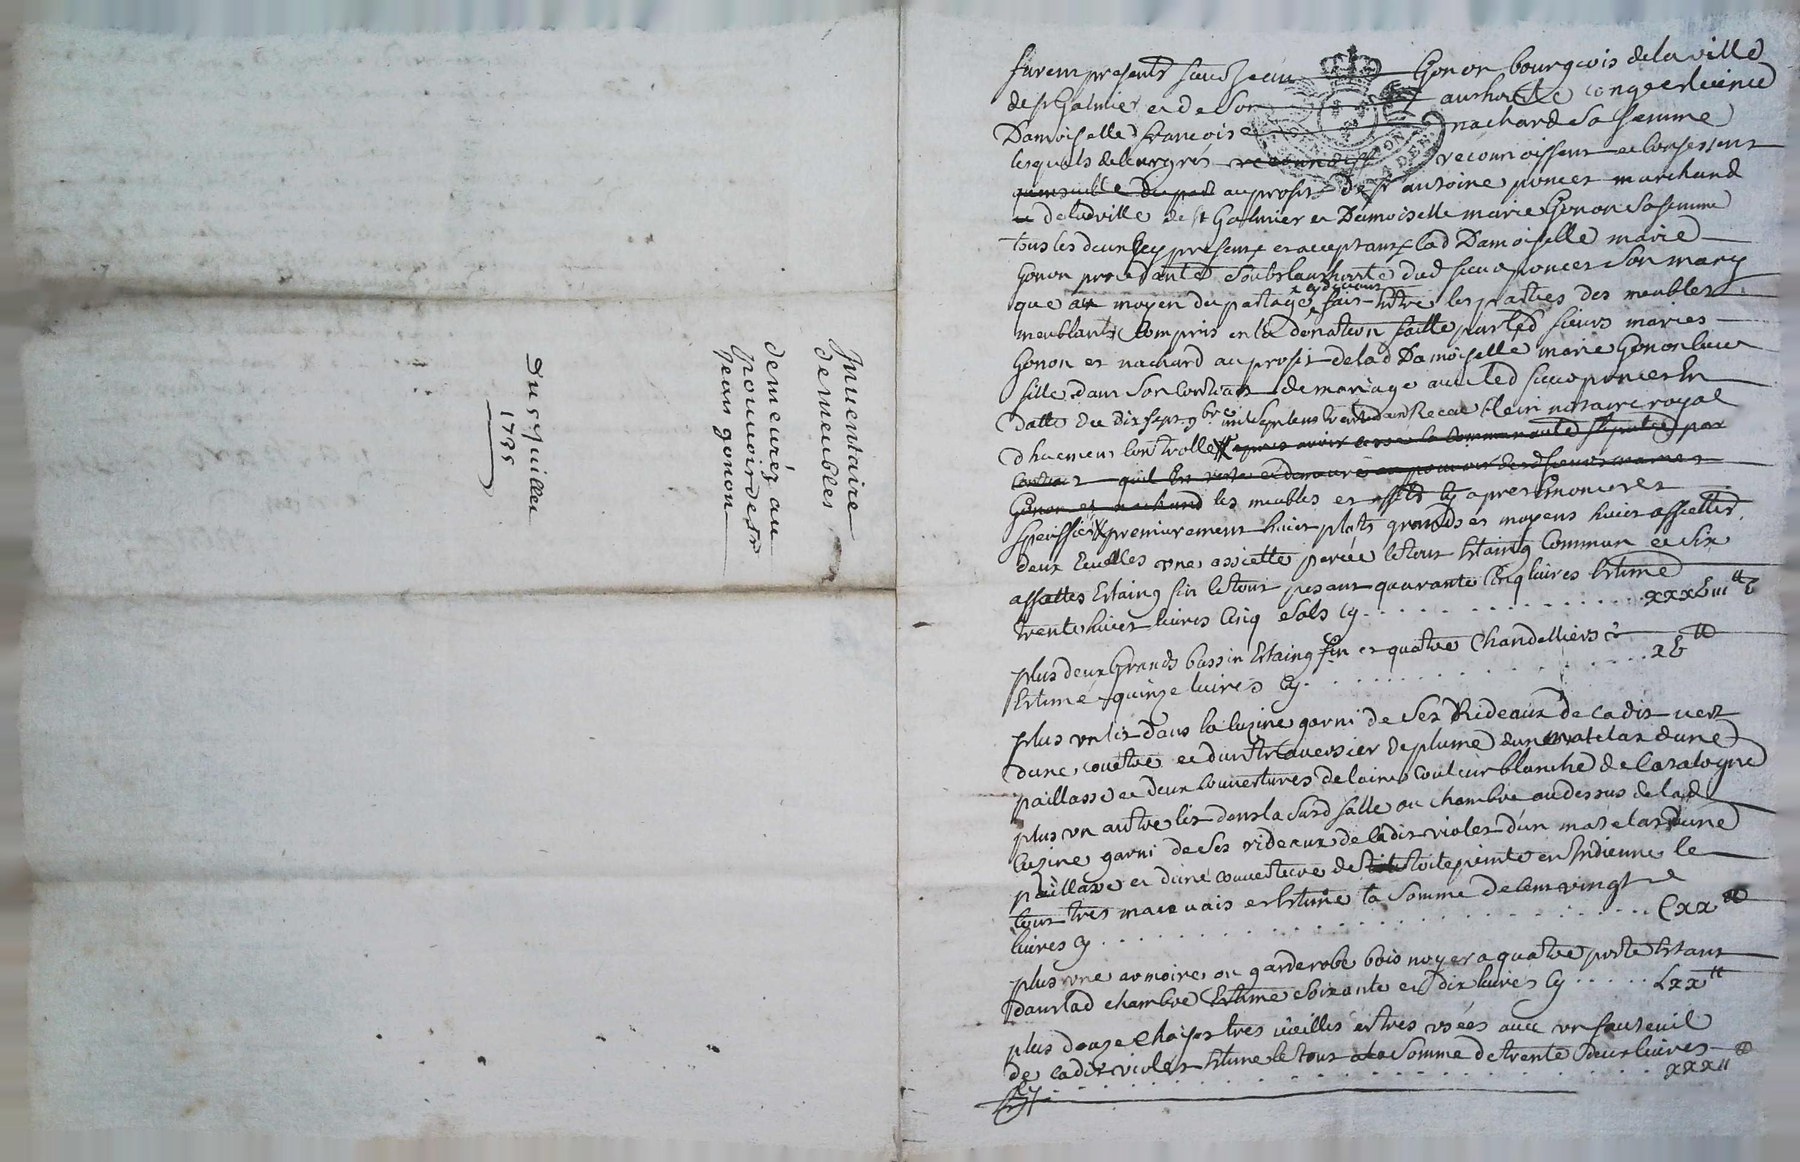 Inuentaire
de meubles
demeurés au
pouuoir de sr
Jean gonon
du 5 Juillet
1735
furent presents sieur Jean Gonon bourgeois de la ville
de st Galmier et de son authorité congé et licence
Damoiselle Francoise nachard sa femme
lesquels de leur gres reconnoissent et confessent
au profit de sr antoine poncet marchand
de lad ville de st Galmier et Damoiselle marie Gonon sa femme
tous les deux icy presents et acceptants lad Damoiselle marie
Gonon procedante soubs lauthorité dud sieur poncet son mary
que au moyen du partage fait entre les parties des meubles
meublants compris en la donation faitte par led sieurs maries
Gonon et nachard au profit de lad Damoiselle marie Gonon leur
fille dans son contract de mariage auec led sieur poncet en
datte du dix sept 9bre notaire royal
controllé apres auoir
contract quil en reste et demeure au pouuoir desd sieurs maries
Gonon et nachard les meubles et effets cy apres enoncés et
speciffiés premierement huict plats grands et moyens huict assiettes
deux Ecuelles une assiette percée le tout Estaing commun et six
assiettes Estaing fin le tout pesant quarante cinq liures Estimé
trente huict liures cinq sols cy . . . . . . . . . xxxviii tt v
plus deux Grands bassin Estaing fin et quatre Chandelliers
Estimé quinze liures cy . . . . . . . . . xv tt
plus un lit dans la cuzine garni de ses Rideaux de cadis vert
dune couëtre et dun trauersier de plume dun matelax dune
paillasse et deux couuertures de laine couleur blanche de Catalogne
plus un autre lit dans la salle ou chambre au dessus de lad
cuzine garni de ses rideaux de cadis violet dun matelas dune
paillasse et dune couuerture de toile peinte en Indienne le
tout tres mauuais et Estimé la somme de cent vingt
liures cy . . . . . . . . . Cxx tt
plus une armoire ou garderobe bois noyer a quatre porte Estant
dans lad chambre Estimé soixante et dix liures cy . . . . . Lxx tt
plus douze chaises tres vieilles et tres usées auec un fauteuil
de cadis violet Estimé le tout a la somme de trente deux liures
cy . . . . . . . . . xxxii tt